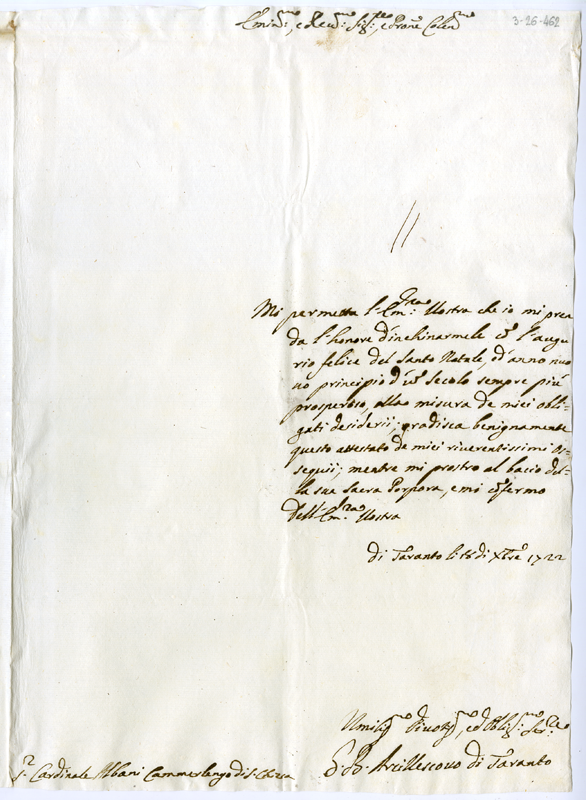 3-26-462
Emin.mo, e Rev.mo Sig.re, e Prone Colen.mo
Mi permetta l'Em.za Vostra che io mi pren
da l'honore d'inchinarmele cõ l'augu
rio felice del Santo Natale, ed'anno nuo
uo principio d'ũ secolo sempre più
prosperoso, alla misura de miei obli-
gati desiderii; gradisca benignamente
questo attestato de miei riuerentissimi os-
sequii; mentre mi prostro al bacio del-
la sua Sacra Porpora, e mi cõfermo
Dell'Em.za Vostra
di Taranto li 18 di Xbre 1722
Umiliss.mo Diuotiss.mo, ed Oblig.mo Ser.
Arciuescouo di Taranto
S.r Cardinale Albani Cammerlengo di S. Chiesa